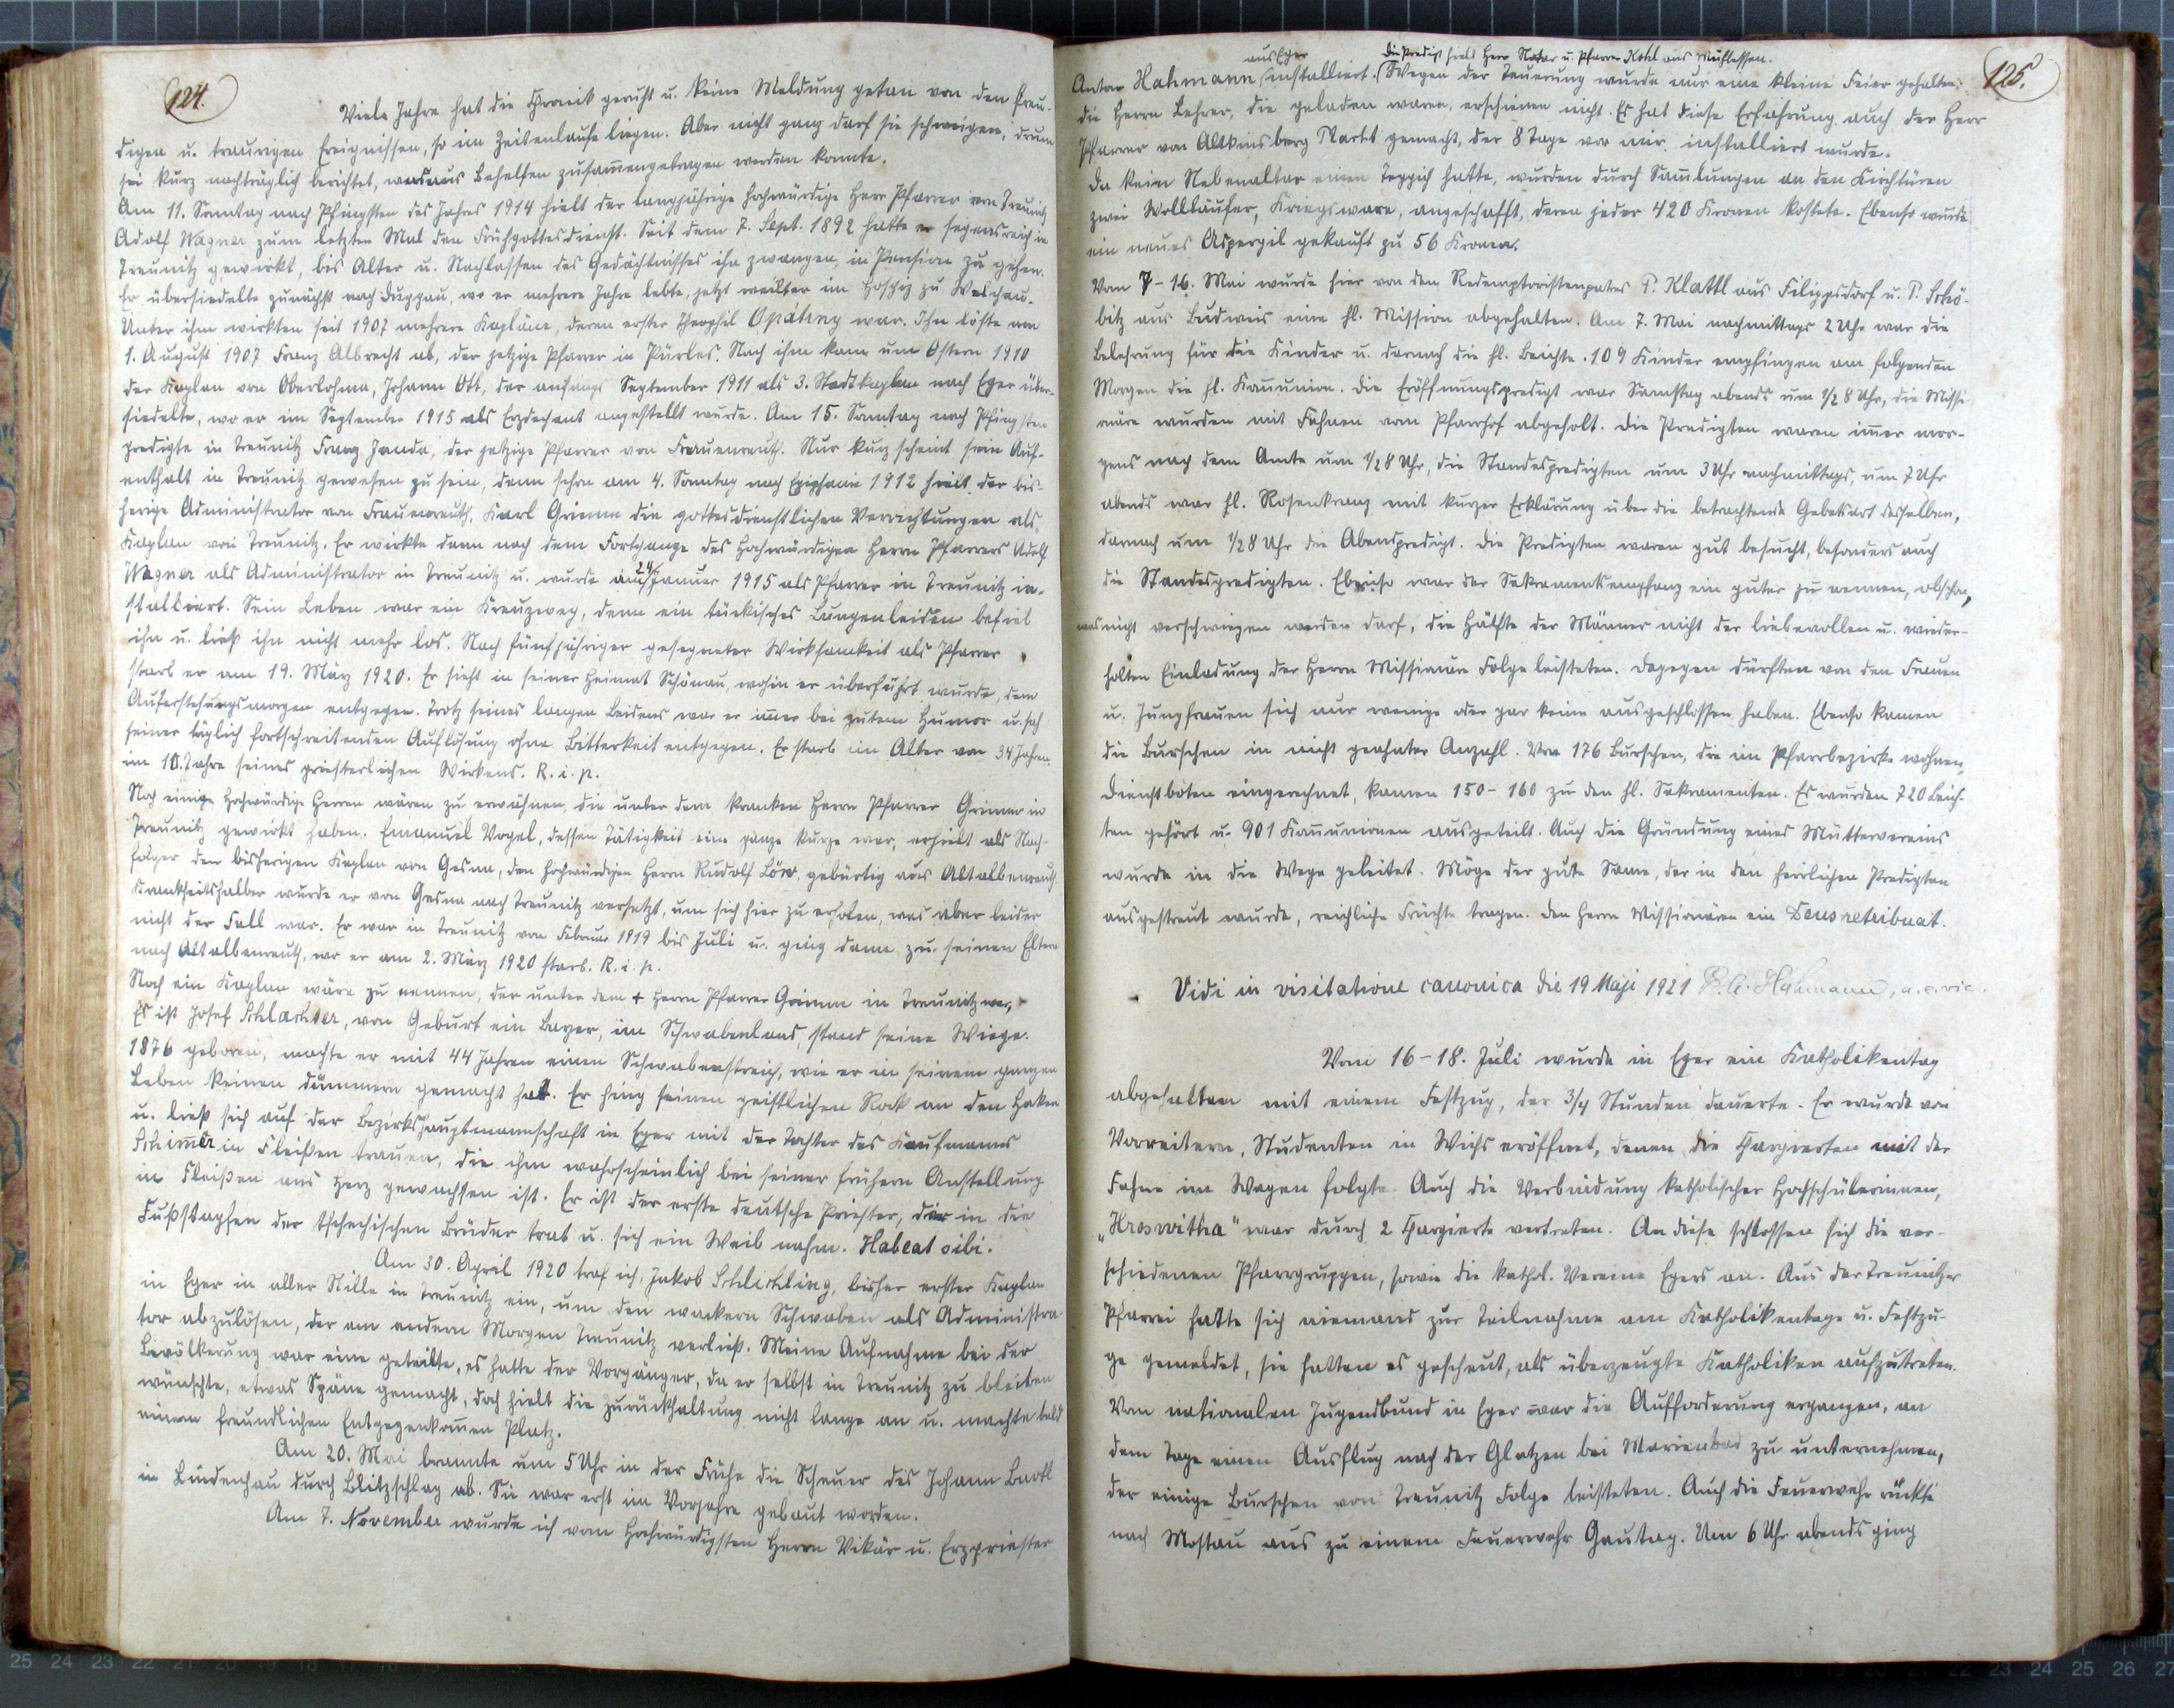 124.
Viele Jahre hat die Chronik geruht u. keine Meldung getan von den freu-
digen u. traurigen Ereignissen, so im Zeitenlaufe liegen. Aber nicht ganz darf sie schweigen, drum
sei kurz nachträglich berichtet, was aus Behelfen zusam̄engetragen werden konnte.
Am 11. Sonntag nach Pfingsten des Jahres 1914 hielt der langjährige hochwürdige Herr Pfarrer von Treunitz
Adolf Wagner zum letzten Mal den Frühgottesdienst. Seit dem 7. Sept. 1892 hatte er segensreich in
Treunitz gewirkt, bis Alter u. Nachlassen des Gedächtnisses ihn zwangen, in Pension zu gehen.
Er übersiedelte zunächst nach Duppau, wo er mehrere Jahre lebte, jetzt weilt er im Hospiz zu Welchau.
Unter ihm wirkten seit 1907 mehrere Kapläne, deren erster Theophil Opatrny war. Ihn löste am
1. August 1907 Franz Albrecht ab, der jetzige Pfarrer in Pürles. Nach ihm kam um Ostern 1910
der Kaplan von Oberlohma, Johann Ott, der anfangs September 1911 als 3. Stadtkaplan nach Eger über-
siedelte, wo er im September 1915 als Erzdechant angestellt wurde. Am 15. Sonntag nach Pfingsten
predigte in Treunitz Franz Janda, der jetzige Pfarrer von Frauenreuth. Nur kurz scheint sein Auf-
enthalt in Treunitz gewesen zu sein, denn schon am 4. Sonntag nach Epiphanie 1912 hielt der bis-
herige Administrator von Frauenreuth, Karl Grimm die gottesdienstlichen Verrichtungen als
Kaplan von Treunitz. Er wirkte dann nach dem Fortgange des hochwürdigen Herrn Pfarrers Adolf
Wagner als Administrator in Treunitz u. wurde am 24. Januar 1915 als Pfarrer in Treunitz in-
stalliert. Sein Leben war ein Kreuzweg, denn ein tückisches Lungenleiden befiel
ihn u. ließ ihn nicht mehr los. Nach fünfjähriger gesegneter Wirksamkeit als Pfarrer
starb er am 19. März 1920. Er sieht in seiner Heimat Schönau, wohin er überführt wurde, dem
Auferstehungsmorgen entgegen. Trotz seines langen Leidens war er im̄er bei gutem Humor u. sah
seiner täglich fortschreitenden Auflösung ohne Bitterkeit entgegen. Er starb im Alter von 34 Jahren
im 10. Jahre seines priesterlichen Wirkens. R. i. p.
Noch einige hochwürdige Herren wären zu erwähnen, die unter dem kranken Herrn Pfarrer Grimm in
Treunitz gewirkt haben. Emanuel Vogel, dessen Tätigkeit eine ganze kurze war, erhielt als Nach-
folger den bisherigen Kaplan von Gesna, den hochwürdigen Herrn Rudolf Löw, gebürtig aus Altalbenreuth.
Krankheitshalber wurde er von Gesna nach Treunitz versetzt, um sich hier zu erholen, was aber leider
nicht der Fall war. Er war in Treunitz von Februar 1919 bis Juli u. ging dann zu seinen Eltern
nach Altalbenreuth, wo er am 2. März 1920 starb. R. i. p.
Noch ein Kaplan wäre zu nennen, der unter dem + Herrn Pfarrer Grimm in Treunitz war,
Es ist Josef Schlachter, von Geburt ein Bayer, im Schwabenland, stand seine Wiege.
1876 geboren, machte er mit 44 Jahren einen Schwabenstreich, wie er in seinem ganzen
Leben keinen dümmern gemacht hat. Er hing seinen geistlichen Rock an den Haken
u. ließ sich auf der Bezirkshauptmannschaft in Eger mit der Tochter des Kaufmanns
in Fleißen trauen, die ihm wahrscheinlich bei seiner frühern Anstellung
in Fleißen ans Herz gewachsen ist. Er ist der erste deutsche Priester, der in die
Fußstapfen der tschechischen Brüder trat u. sich ein Weib nahm. Habeat sibi.
Am 30. April 1920 traf ich, Jakob Schlichting, bisher erster Kaplan
in Eger in aller Stille in Treunitz ein, um den wackern Schwaben als Administra-
tor abzulösen, der am andern Morgen Treunitz verließ. Meine Aufnahme bei der
Bevölkerung war eine geteilte, es hatte der Vorgänger, da er selbst in Treunitz zu bleiben
wünschte, etwas Späne gemacht, doch hielt die Zurückhaltung nicht lange an u. machte bald
einem freundlichen Entgegenkom̄en Platz.
Am 20. Mai brannte um 5 Uhr in der Frühe die Scheuer des Johann Bartl
in Lindenhau durch Blitzschlag ab. Sie war erst im Vorjahre gebaut worden.
Am 7. November wurde ich vom hochwürdigsten Herrn Vikär u. Erzpriester
125.
aus Eger Die Predigt hielt Herr Notar u. Pfarrer Kohl aus Mühlessen.
Anton Hahmann installiert. Wegen der Teuerung wurde nur eine kleine Feier gehalten;
die Herrn Lehrer, die geladen waren, erschienen nicht. Es hat diese Erfahrung auch der Herr
Pfarrer von Altkinsberg Markt gemacht, der 8 Tage vor mir installiert wurde.
Da kein Nebenaltar einen Teppich hatte, wurden durch Sam̄lungen an den Kirchtüren
zwei Wollläufer, Kriegsware, angeschafft, deren jeder 420 Kronen kostete. Ebenso wurde
ein neues Aspergil gekauft zu 56 Kronen.
Vom 7-16. Mai wurde hier von dem Redemptoristenpatres P. Klattl aus Filippsdorf u. P. Schö-
bitz aus Budweis eine hl. Mission abgehalten. Am 7. Mai nachmittags 2 Uhr war die
Belehrung für die Kinder u. darnach die hl. Beichte. 109 Kinder empfingen am folgenden
Morgen die hl. Kom̄union. Die Eröffnungspredigt war Samstag abends um 1/2 8 Uhr, die Missi
onäre wurden mit Fahnen vom Pfarrhof abgeholt. Die Predigten waren im̄er mor-
gens nach dem Amte um 1/2 8 Uhr, die Standespredigten um 3 Uhr nachmittags, um 7 Uhr
abends war hl. Rosenkranz mit kurzer Erklärung über die betrachtende Gebetsart desselben,
darnach um 1/2 8 Uhr die Abendpredigt. Die Predigten waren gut besucht, besonders auch
die Standespredigten. Ebenso war der Sakramentsempfang ein guter zu nennen, obschon,
was nicht verschwiegen werden darf, die Hälfte der Männer nicht der liebevollen u. wieder-
holten Einladung der Herrn Missionäre Folge leisteten. Dagegen dürften von den Frauen
u. Jungfrauen sich nur wenige oder gar keine ausgeschlossen haben. Ebenso kamen
die Burschen in nicht geahnter Anzahl. Von 176 Burschen, die im Pfarrbezirke wohnen,
Dienstboten eingerechnet, kamen 150-160 zu den hl. Sakramenten. Es wurden 720 Beich-
ten gehört u. 901 Kom̄unionen ausgeteilt. Auch die Gründung eines Müttervereins
wurde in die Wege geleitet. Möge der gute Same, der in den herrlichen Predigten
ausgestreut wurde, reichliche Früchte tragen. Den Herrn Missionären ein Deus retribuat.
Vidi in visitatione canonica die 19 Maji 1921 P. A. Hahmann, a. e. vic.
Vom 16-18. Juli wurde in Eger ein Katholikentag
abgehalten mit einem Festzug, der 3/4 Stunden dauerte. Er wurde von
Vorreitern, Studenten in Wichs eröffnet, denen die Chargierten mit der
Fahne im Wagen folgte. Auch die Verbindung katholischer Hochschülerinnen,
„Hroswitha" war durch 2 Chargierte vertreten. An diese schlossen sich die ver-
schiedenen Pfarrgruppen, sowie die kathol. Vereine Egers an. Aus der Treunitzer
Pfarrei hatte sich niemand zur Teilnahme am Katholikentage u. Festzu-
ge gemeldet, sie hatten es gescheut, als überzeugte Katholiken aufzutreten.
Vom nationalen Jugendbund in Eger war die Aufforderung ergangen, an
dem Tage einen Ausflug nach der Glatzen bei Marienbad zu unternehmen,
der einige Burschen von Treunitz Folge leisteten. Auch die Feuerwehr rückte
nach Mostau aus zu einem Feuerwehr Gautag. Um 6 Uhr abends ging